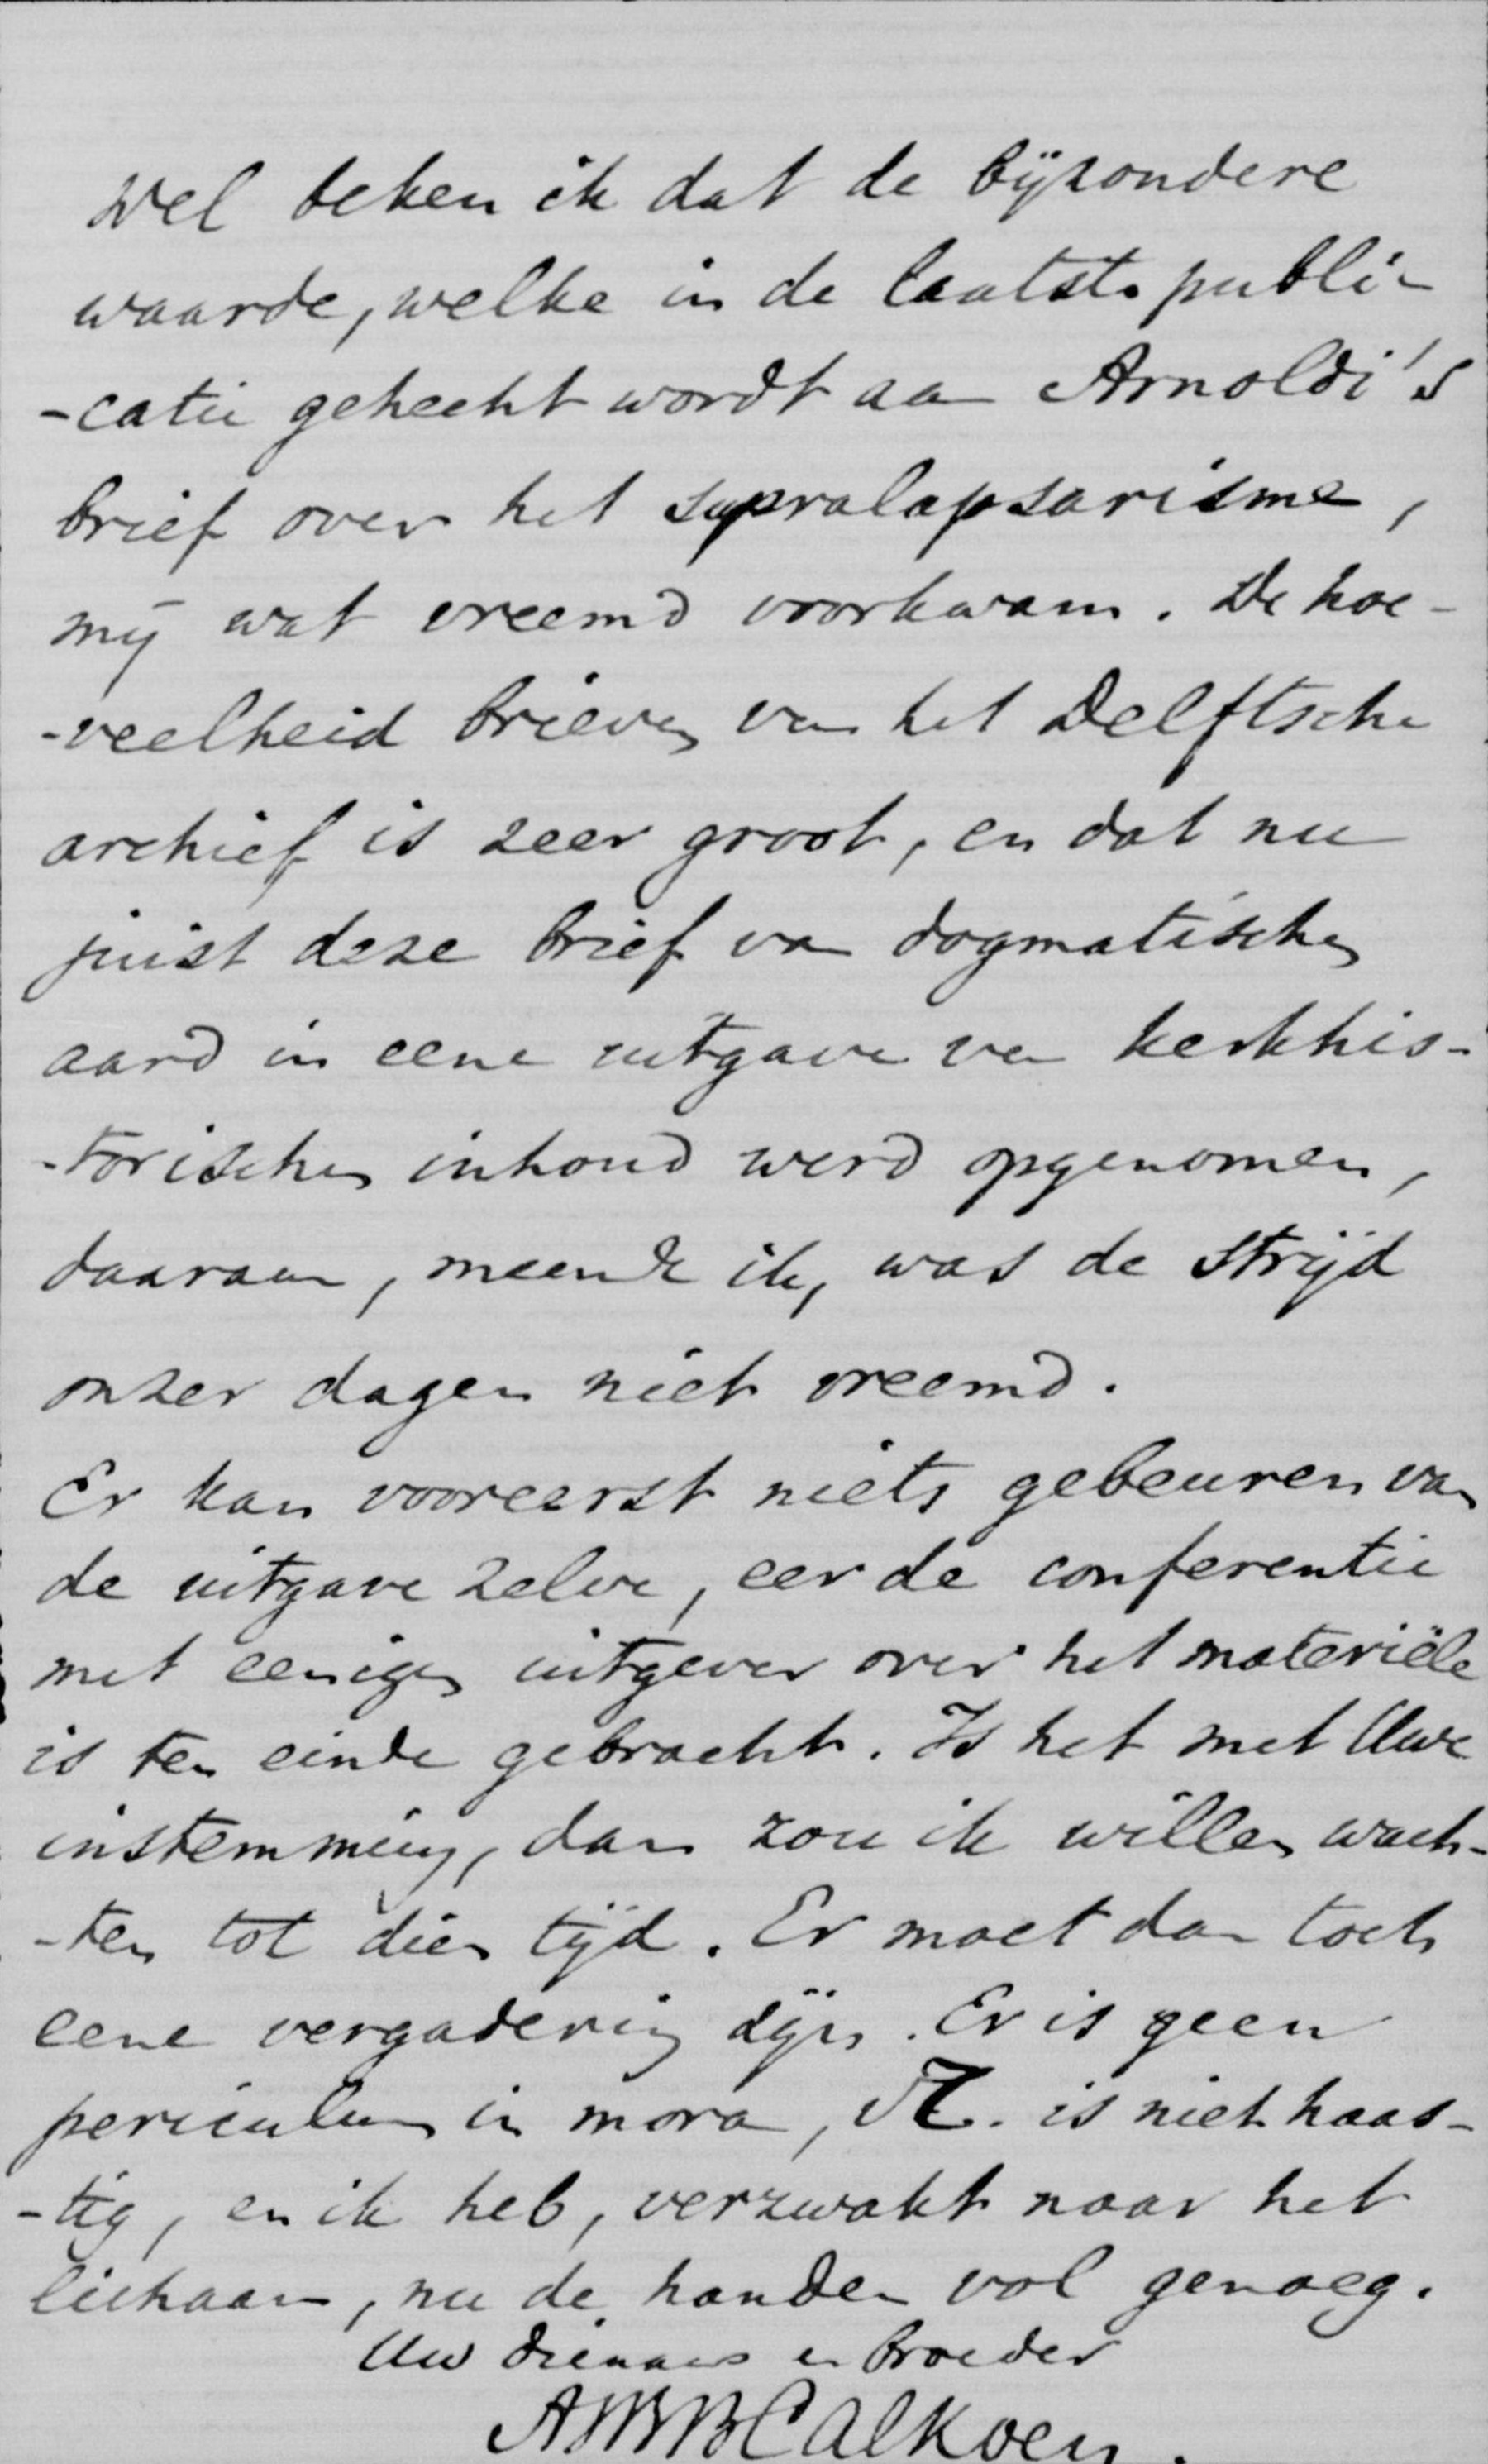 Wel beken ik dat de bijzondere
waarde, welke in de laatste publi-
-catie gehecht wordt aan Arnoldi's
brief over het supralapsarisme,
mij wat vreemd voorkwam. De hoe-
-veelheid brieven van het Delftsche
archief is zeer groot, en dat nu
juist deze brief van dogmatischen
aard in eene uitgave van kerkhis-
-torischen inhoud werd opgenomen,
daaraan, meende ik, was de strijd
onzer dagen niet vreemd.
Er kan vooreerst niets gebeuren van
de uitgave zelve, eer de conferentie
met eenigen uitgever over het materiële
is ten einde gebracht. Is het met Uwe
instemming, dan zou ik willen wach-
-ten tot dien tijd. Er moet dan toch
eene vergadering zijn. Er is geen
periculum in mora, is niet haas-
-tig, en ik heb, verzwakt naar het
lichaam, nu de handen vol genoeg.
Uw dienaar en broeder
Calkoen.